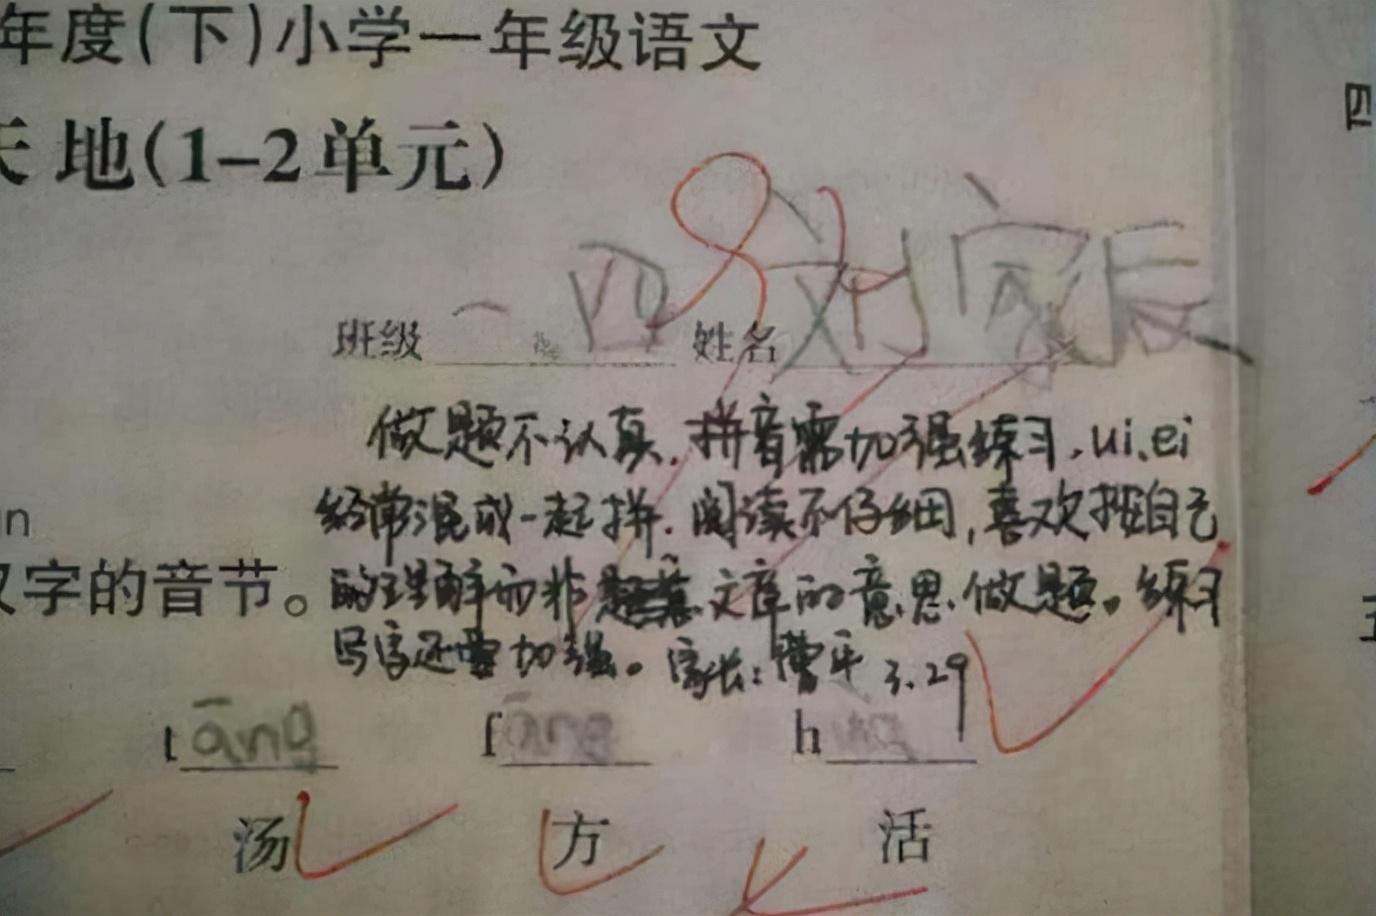 年度(下)小学一年级语文
天地(1-2单元)
四
班级 一 四 姓名 刘家辰
做题不认真.拼音需加强练习,ui、ei
经常混成一起拼.阅读不仔细,喜欢按自己
的理解而非 文章的意思.做题。练习
写字还需加强。家长:曹平 3.29
汉字的音节。
tāng fāng h
汤 方 活